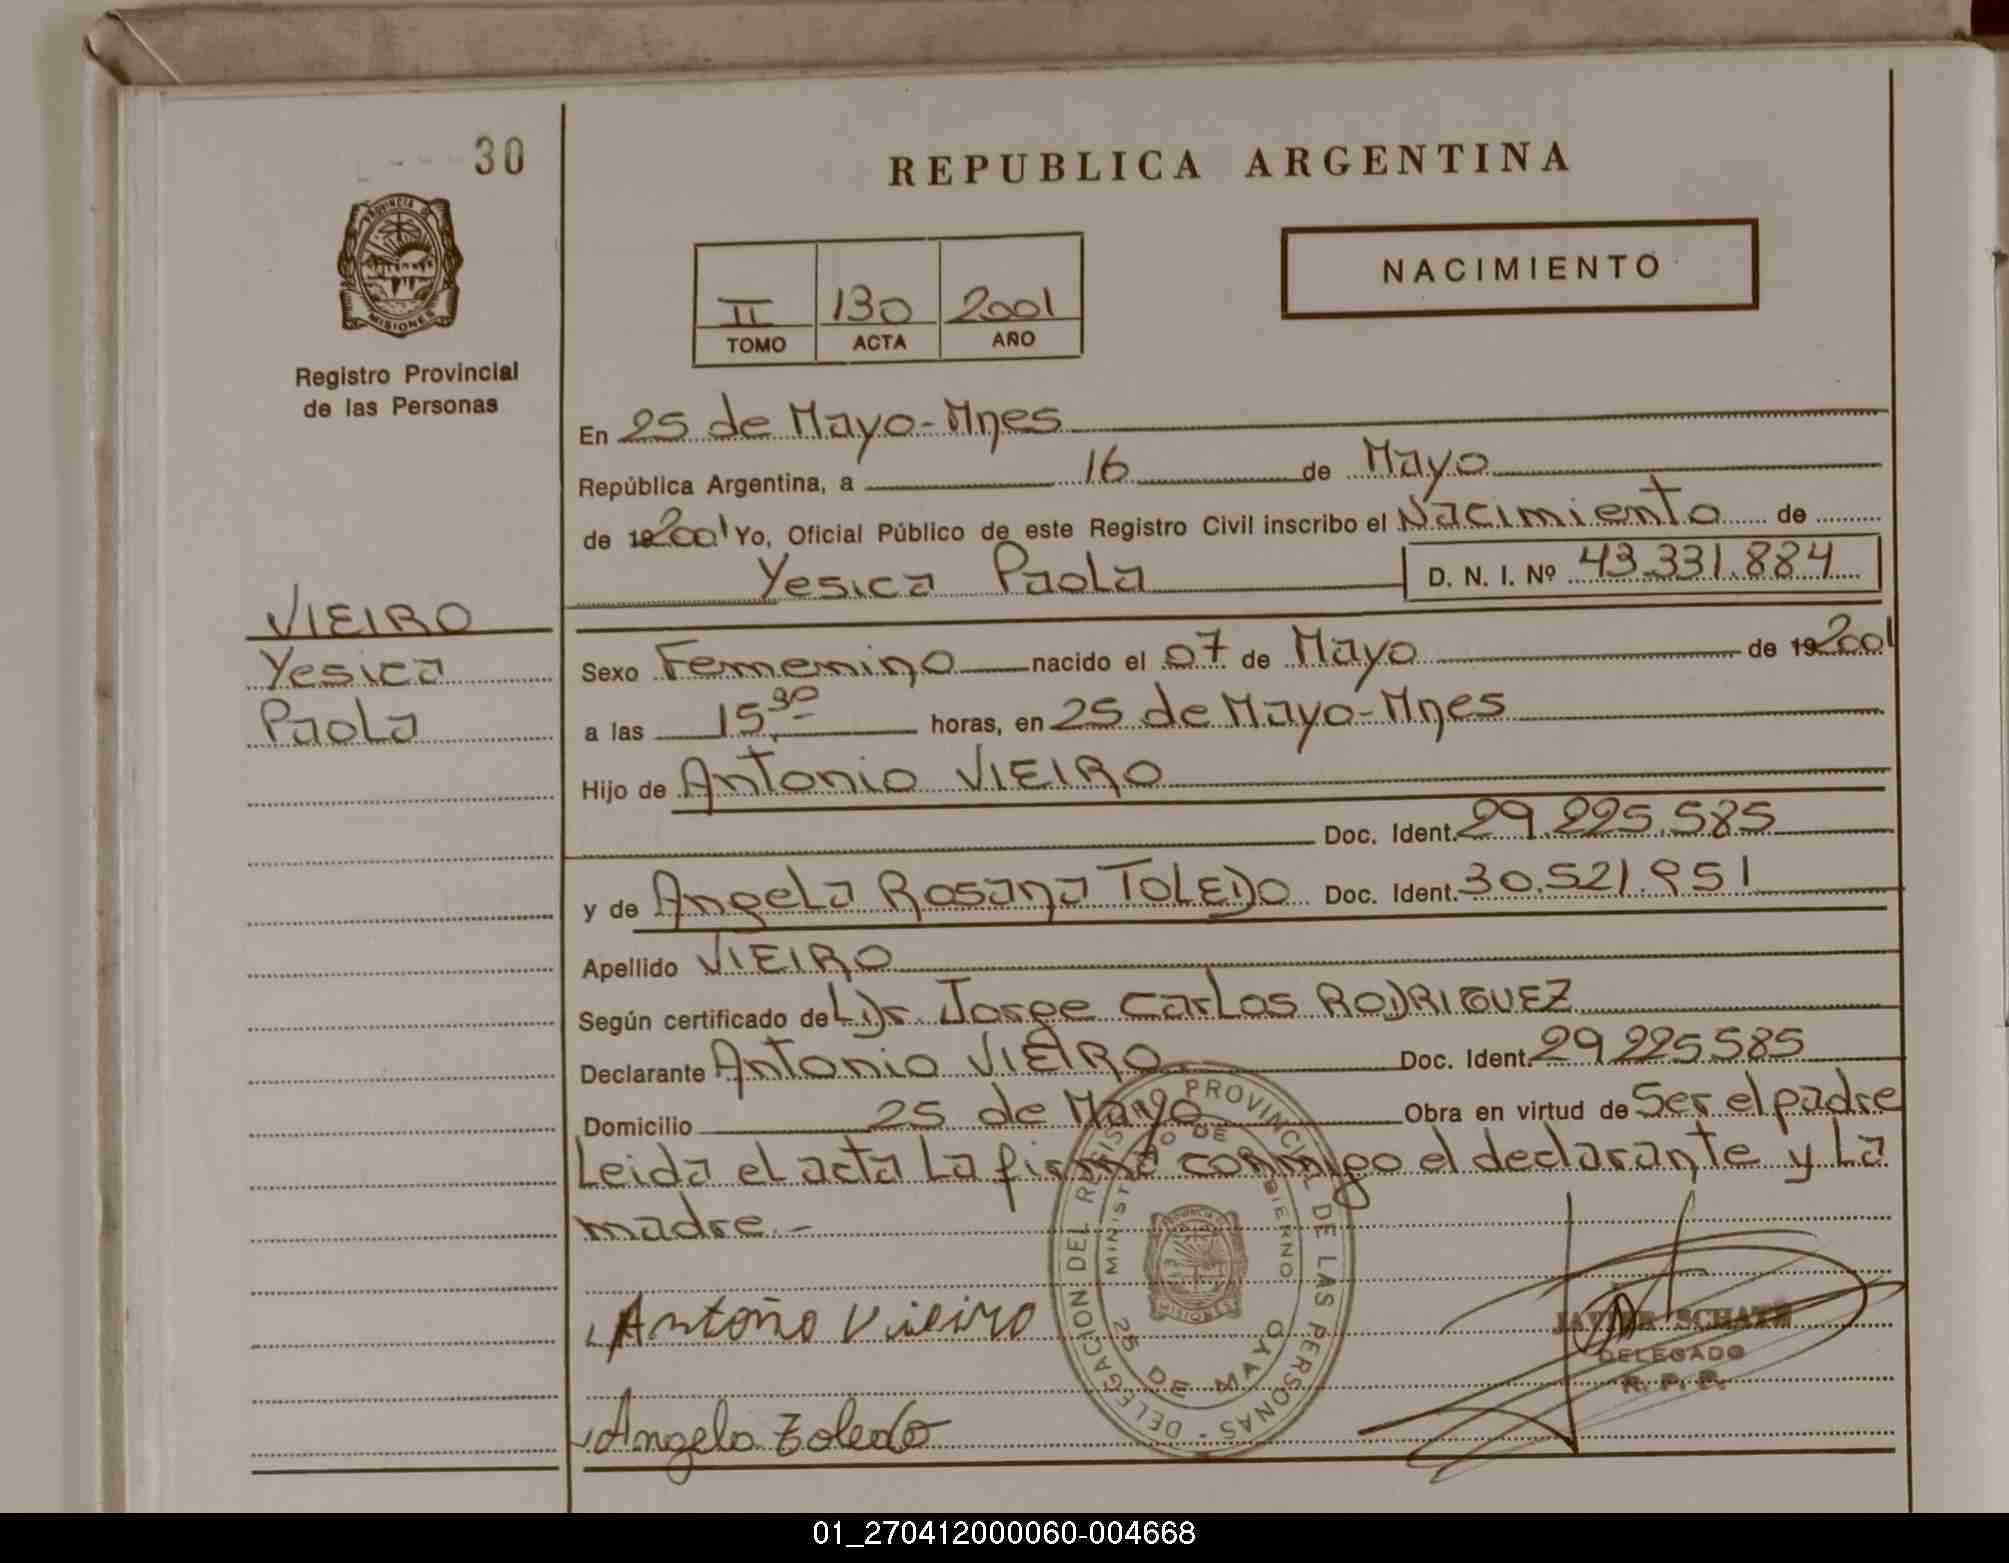 30
REPUBLICA ARGENTINA
PROVINCIA DE
MISIONES
Registro Provincial
de las Personas
NACIMIENTO
II 130 2001
TOMO ACTA AÑO
En 25 de Mayo-Mnes
República Argentina, a 16 de Mayo
de 192001 Yo, Oficial Público de este Registro Civil inscribo el Nacimiento de
Yesica Paola D. N. I. Nº 43.331.884
VIEIRO
Yesica
Paola
Sexo Femenino nacido el 07 de Mayo de 192001
a las 15,30 horas, en 25 de Mayo-Mnes
Hijo de Antonio VIEIRO
Doc. Ident. 29.225.585
y de Angela Rosana TOLEDO Doc. Ident. 30.521.951
Apellido VIEIRO
Según certificado del Dr. Jorge Carlos RODRIGUEZ
Declarante Antonio VIEIRO Doc. Ident. 29.225.585
Domicilio 25 de Mayo Obra en virtud de Ser el padre
Leida el acta La firma conmigo el declarante y La
madre.-
Antonio Vieiro
Angela Toledo
DELEGACION DEL REGISTRO PROVINCIAL DE LAS PERSONAS -
MINISTERIO DE GOBIERNO
PROVINCIA DE
MISIONES
25 DE MAYO
JAVIER SCHATE
DELEGADO
R. P. P.
01_270412000060-004668